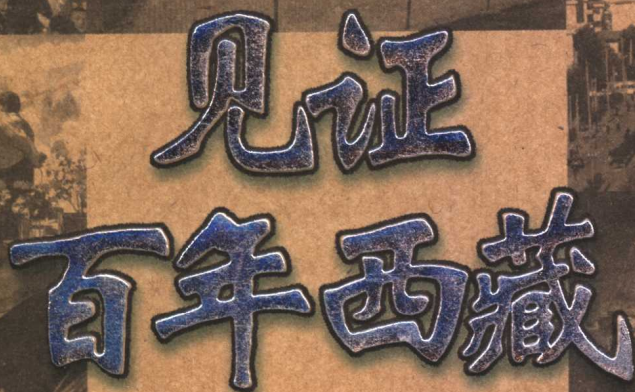 见证
百年西藏